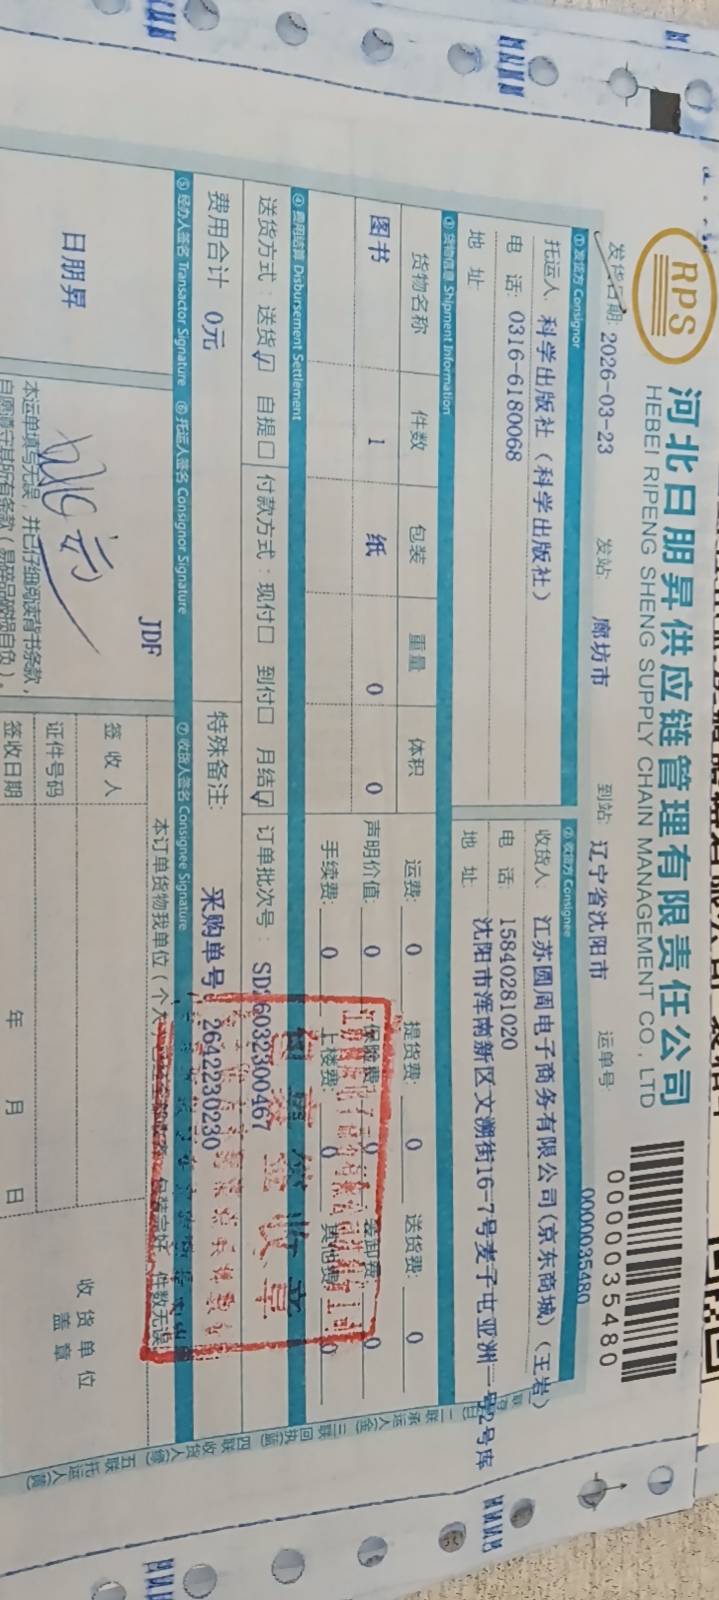 RPS
河北日朋昇供应链管理有限责任公司
HEBEI RIPENG SHENG SUPPLY CHAIN MANAGEMENT CO., LTD
0000035480
发货日期: 2026-03-23 发站: 廊坊市 到站: 辽宁省沈阳市 运单号: 0000035480
① 发货方 Consignor ② 收货方 Consignee
托运人: 科学出版社 (科学出版社) 收货人: 江苏圆周电子商务有限公司(京东商城) (王岩)
电 话: 0316-6180068 电 话: 15840281020
地 址: 地 址: 沈阳市浑南新区文溯街16-7号麦子屯亚洲一号2号库
③ 货物信息 Shipment Information
货物名称 件数 包装 重量 体积 运费: 0 提货费: 0 送货费: 0
图书 1 纸 0 0 声明价值: 0 保险费: 0 装卸费: 0
手续费: 0 上楼费: 0 其他费: 0
④ 费用结算 Disbursement Settlement
送货方式: 送货☑ 自提☐ 付款方式: 现付☐ 到付☐ 月结☑ 订单批次号: SD26032300467
费用合计 0元 特殊备注: 采购单号: 2642230230
⑤ 经办人签名 Transactor Signature ⑥ 托运人签名 Consignor Signature ⑦ 收货人签名 Consignee Signature
JDF
日朋昇
本订单货物我单位(个人) 包装完好, 件数无误
本运单填写无误, 并已仔细阅读背书条款,
自愿遵守其所有条款(易碎品破损自负)。
签收人
证件号码
签收日期 年 月 日
收货单位
盖章
收章
二联承运人(金)
三联回执(蓝)
四联收货人(绿)
五联托运人(黄)